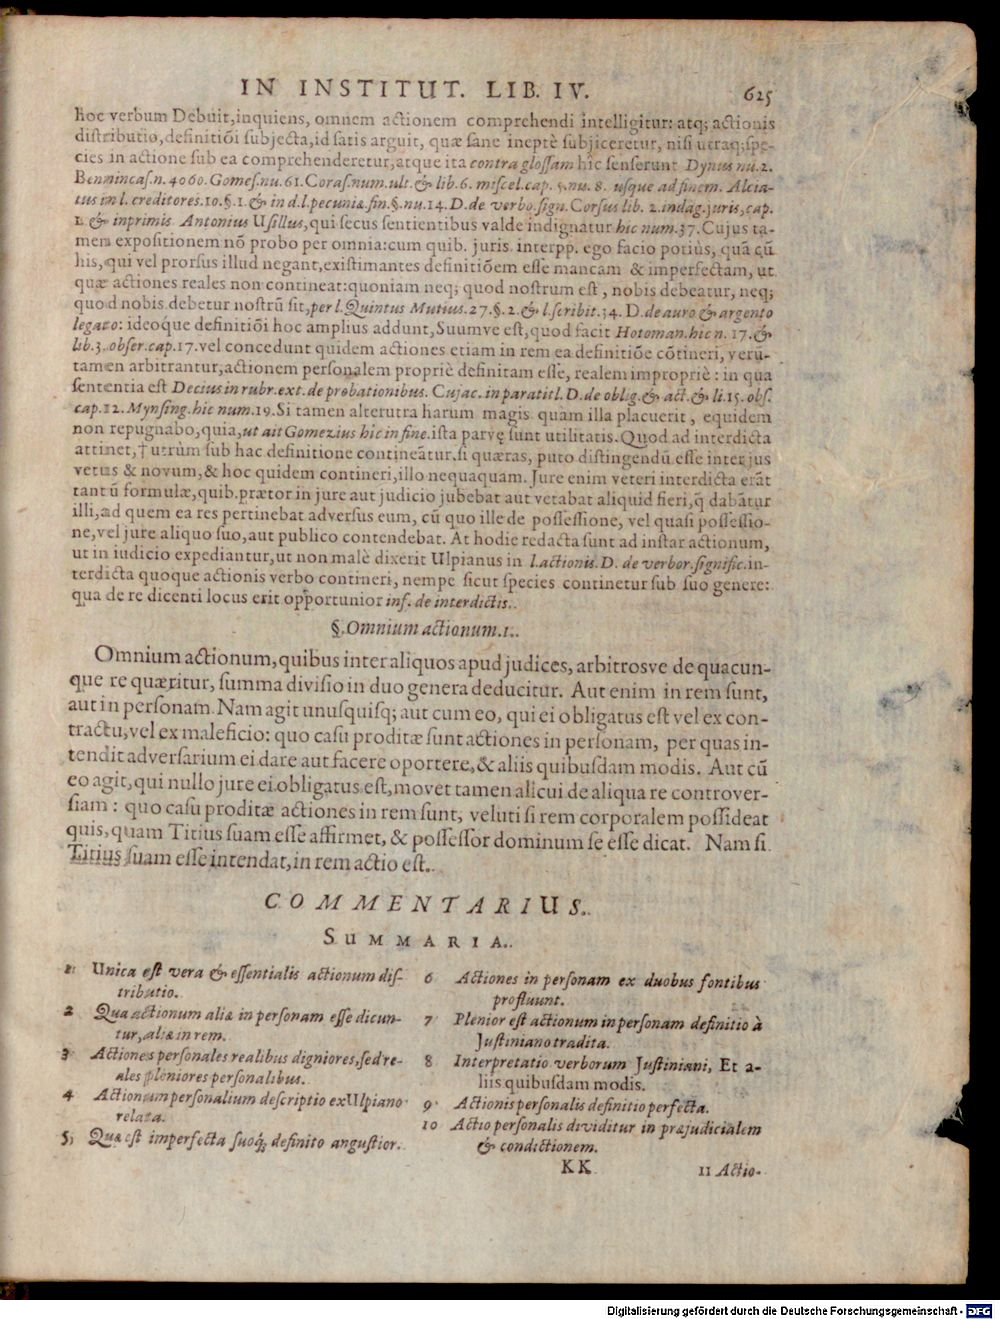 IN INSTITUT. LIB. IV. 625
hoc verbum Debuit, inquiens, omnem actionem comprehendi intelligitur: atq; actionis
distributio, definitiõi subjecta, id satis arguit, quæ sane ineptè subjiceretur, nisi utraq; spe-
cies in actione sub ea comprehenderetur, atque ita contra glossam hîc senserunt Dynus nu. 2.
Bennincas. n. 4060. Gomes. nu. 61. Coras. num. ult. & lib. 6. miscel. cap. 5. nu. 8. usque ad finem. Alcia-
tus in l. creditores. 10. §. 1. & in d. l. pecuniæ. fin. §. nu. 14. D. de verbo. sign. Corsus lib. 2. indag. juris, cap.
1. & inprimis Antonius Usillus, qui secus sentientibus valde indignatur hic num. 37. Cujus ta-
men expositionem nõ probo per omnia: cum quib. juris interpp. ego facio potius, quã cũ
his, qui vel prorsus illud negant, existimantes definitiõem esse mancam & imperfectam, ut
quæ actiones reales non contineat: quoniam neq; quod nostrum est, nobis debeatur, neq;
quod nobis debetur nostrũ sit, per l. Quintus Mutius. 27. §. 2. & l. scribit. 34. D. de auro & argento
legato: ideoque definitiõi hoc amplius addunt, Suumve est, quod facit Hotoman. hic n. 17. &
lib. 3. obser. cap. 17. vel concedunt quidem actiones etiam in rem ea definitiõe cõtineri, verũ-
tamen arbitrantur, actionem personalem propriè definitam esse, realem impropriè: in qua
sententia est Decius in rubr. ext. de probationibus. Cujac. in paratitl. D. de oblig. & act. & li. 15. obs.
cap. 12. Mynsing. hic num. 19. Si tamen alterutra harum magis quàm illa placuerit, equidem
non repugnabo, quia, ut ait Gomezius hic in fine. ista parvę sunt utilitatis. Quod ad interdicta
attinet, † utrùm sub hac definitione contineãtur, si quæras, puto distingendũ esse inter jus
vetus & novum, & hoc quidem contineri, illo nequaquam. Jure enim veteri interdicta erãt
tantũ formulæ, quib. prætor in jure aut judicio jubebat aut vetabat aliquid fieri, q̃ dabãtur
illi, ad quem ea res pertinebat adversus eum, cũ quo ille de possessione, vel quasi possessio-
ne, vel jure aliquo suo, aut publico contendebat. At hodie redacta sunt ad instar actionum,
ut in iudicio expediantur, ut non malè dixerit Ulpianus in l. actionis. D. de verbor. signific. in-
terdicta quoque actionis verbo contineri, nempe sicut species continetur sub suo genere:
qua de re dicenti locus erit opportunior inf. de interdictis.
§. Omnium actionum. 1.
Omnium actionum, quibus inter aliquos apud judices, arbitrosve de quacun-
que re quæritur, summa divisio in duo genera deducitur. Aut enim in rem sunt,
aut in personam. Nam agit unusquisq; aut cum eo, qui ei obligatus est vel ex con-
tractu, vel ex maleficio: quo casu proditæ sunt actiones in personam, per quas in-
tendit adversarium ei dare aut facere oportere, & aliis quibusdam modis. Aut cũ
eo agit, qui nullo jure ei obligatus est, movet tamen alicui de aliqua re controver-
siam: quo casu proditæ actiones in rem sunt, veluti si rem corporalem possideat
quis, quam Titius suam esse affirmet, & possessor dominum se esse dicat. Nam si
Titius suam esse intendat, in rem actio est.
COMMENTARIUS.
SUMMARIA.
1 Unica est vera & essentialis actionum dis-
tributio.
2 Qua actionum aliæ in personam esse dicun-
tur, aliæ in rem.
3 Actiones personales realibus digniores, sed re-
ales pleniores personalibus.
4 Actionum personalium descriptio ex Ulpiano
relata.
5 Quæ est imperfecta suoq; definito angustior.
6 Actiones in personam ex duobus fontibus
profluunt.
7 Plenior est actionum in personam definitio à
Justiniano tradita.
8 Interpretatio verborum Justiniani, Et a-
liis quibusdam modis.
9 Actionis personalis definitio perfecta.
10 Actio personalis dividitur in præjudicialem
& condictionem.
KK 11 Actio-
Digitalisierung gefördert durch die Deutsche Forschungsgemeinschaft - DFG